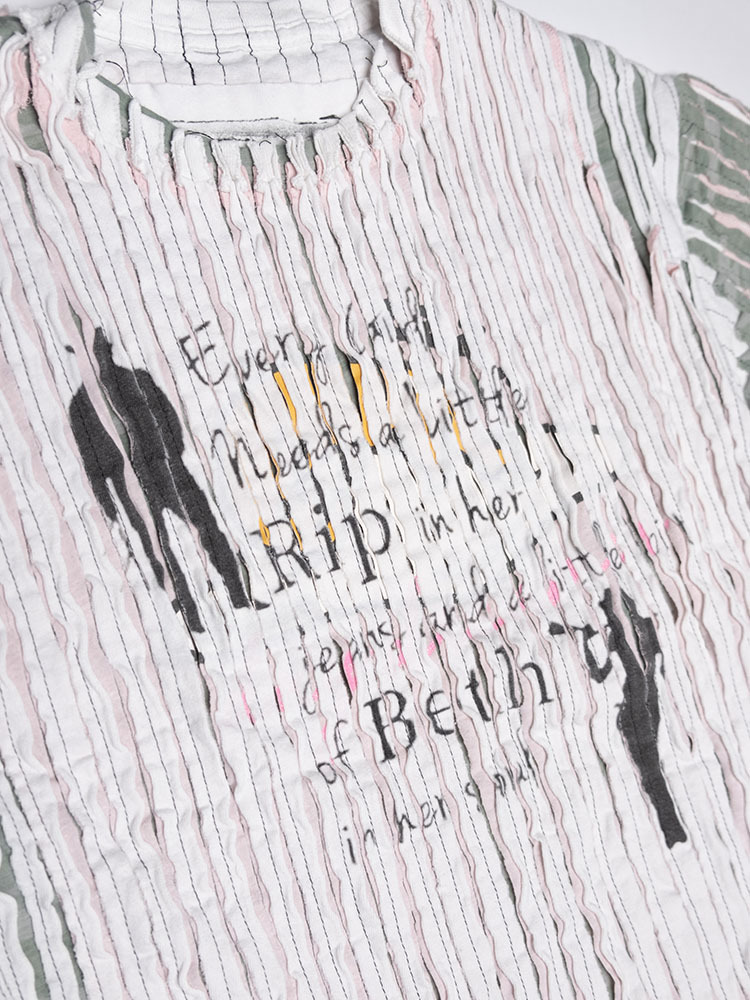 Every
Needs a little
Rip in her
jeans and a little bit
of Beth
in her soul